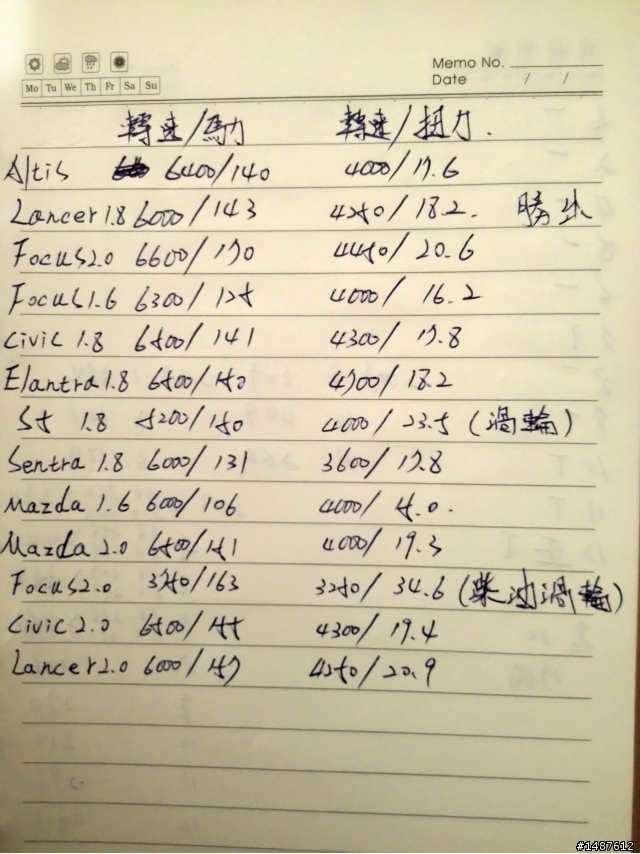 Memo No.
Mo Tu We Th Fr Sa Su
Date / /
轉速/馬力 轉速/扭力.
Altis 6400/140 4000/17.6
Lancer 1.8 6000/143 4250/18.2. 勝出
Focus 2.0 6600/170 4450/20.6
Focus 1.6 6300/125 4000/16.2
Civic 1.8 6500/141 4300/17.8
Elantra 1.8 6500/150 4700/18.2
S5 1.8 5200/150 4000/23.5 (渦輪)
Sentra 1.8 6000/131 3600/17.8
Mazda 1.6 6000/106 4000/15.0.
Mazda 2.0 6500/151 4000/19.3
Focus 2.0 3750/163 3250/34.6 (柴油渦輪)
Civic 2.0 6500/155 4300/19.4
Lancer 2.0 6000/157 4250/20.9
#1487612